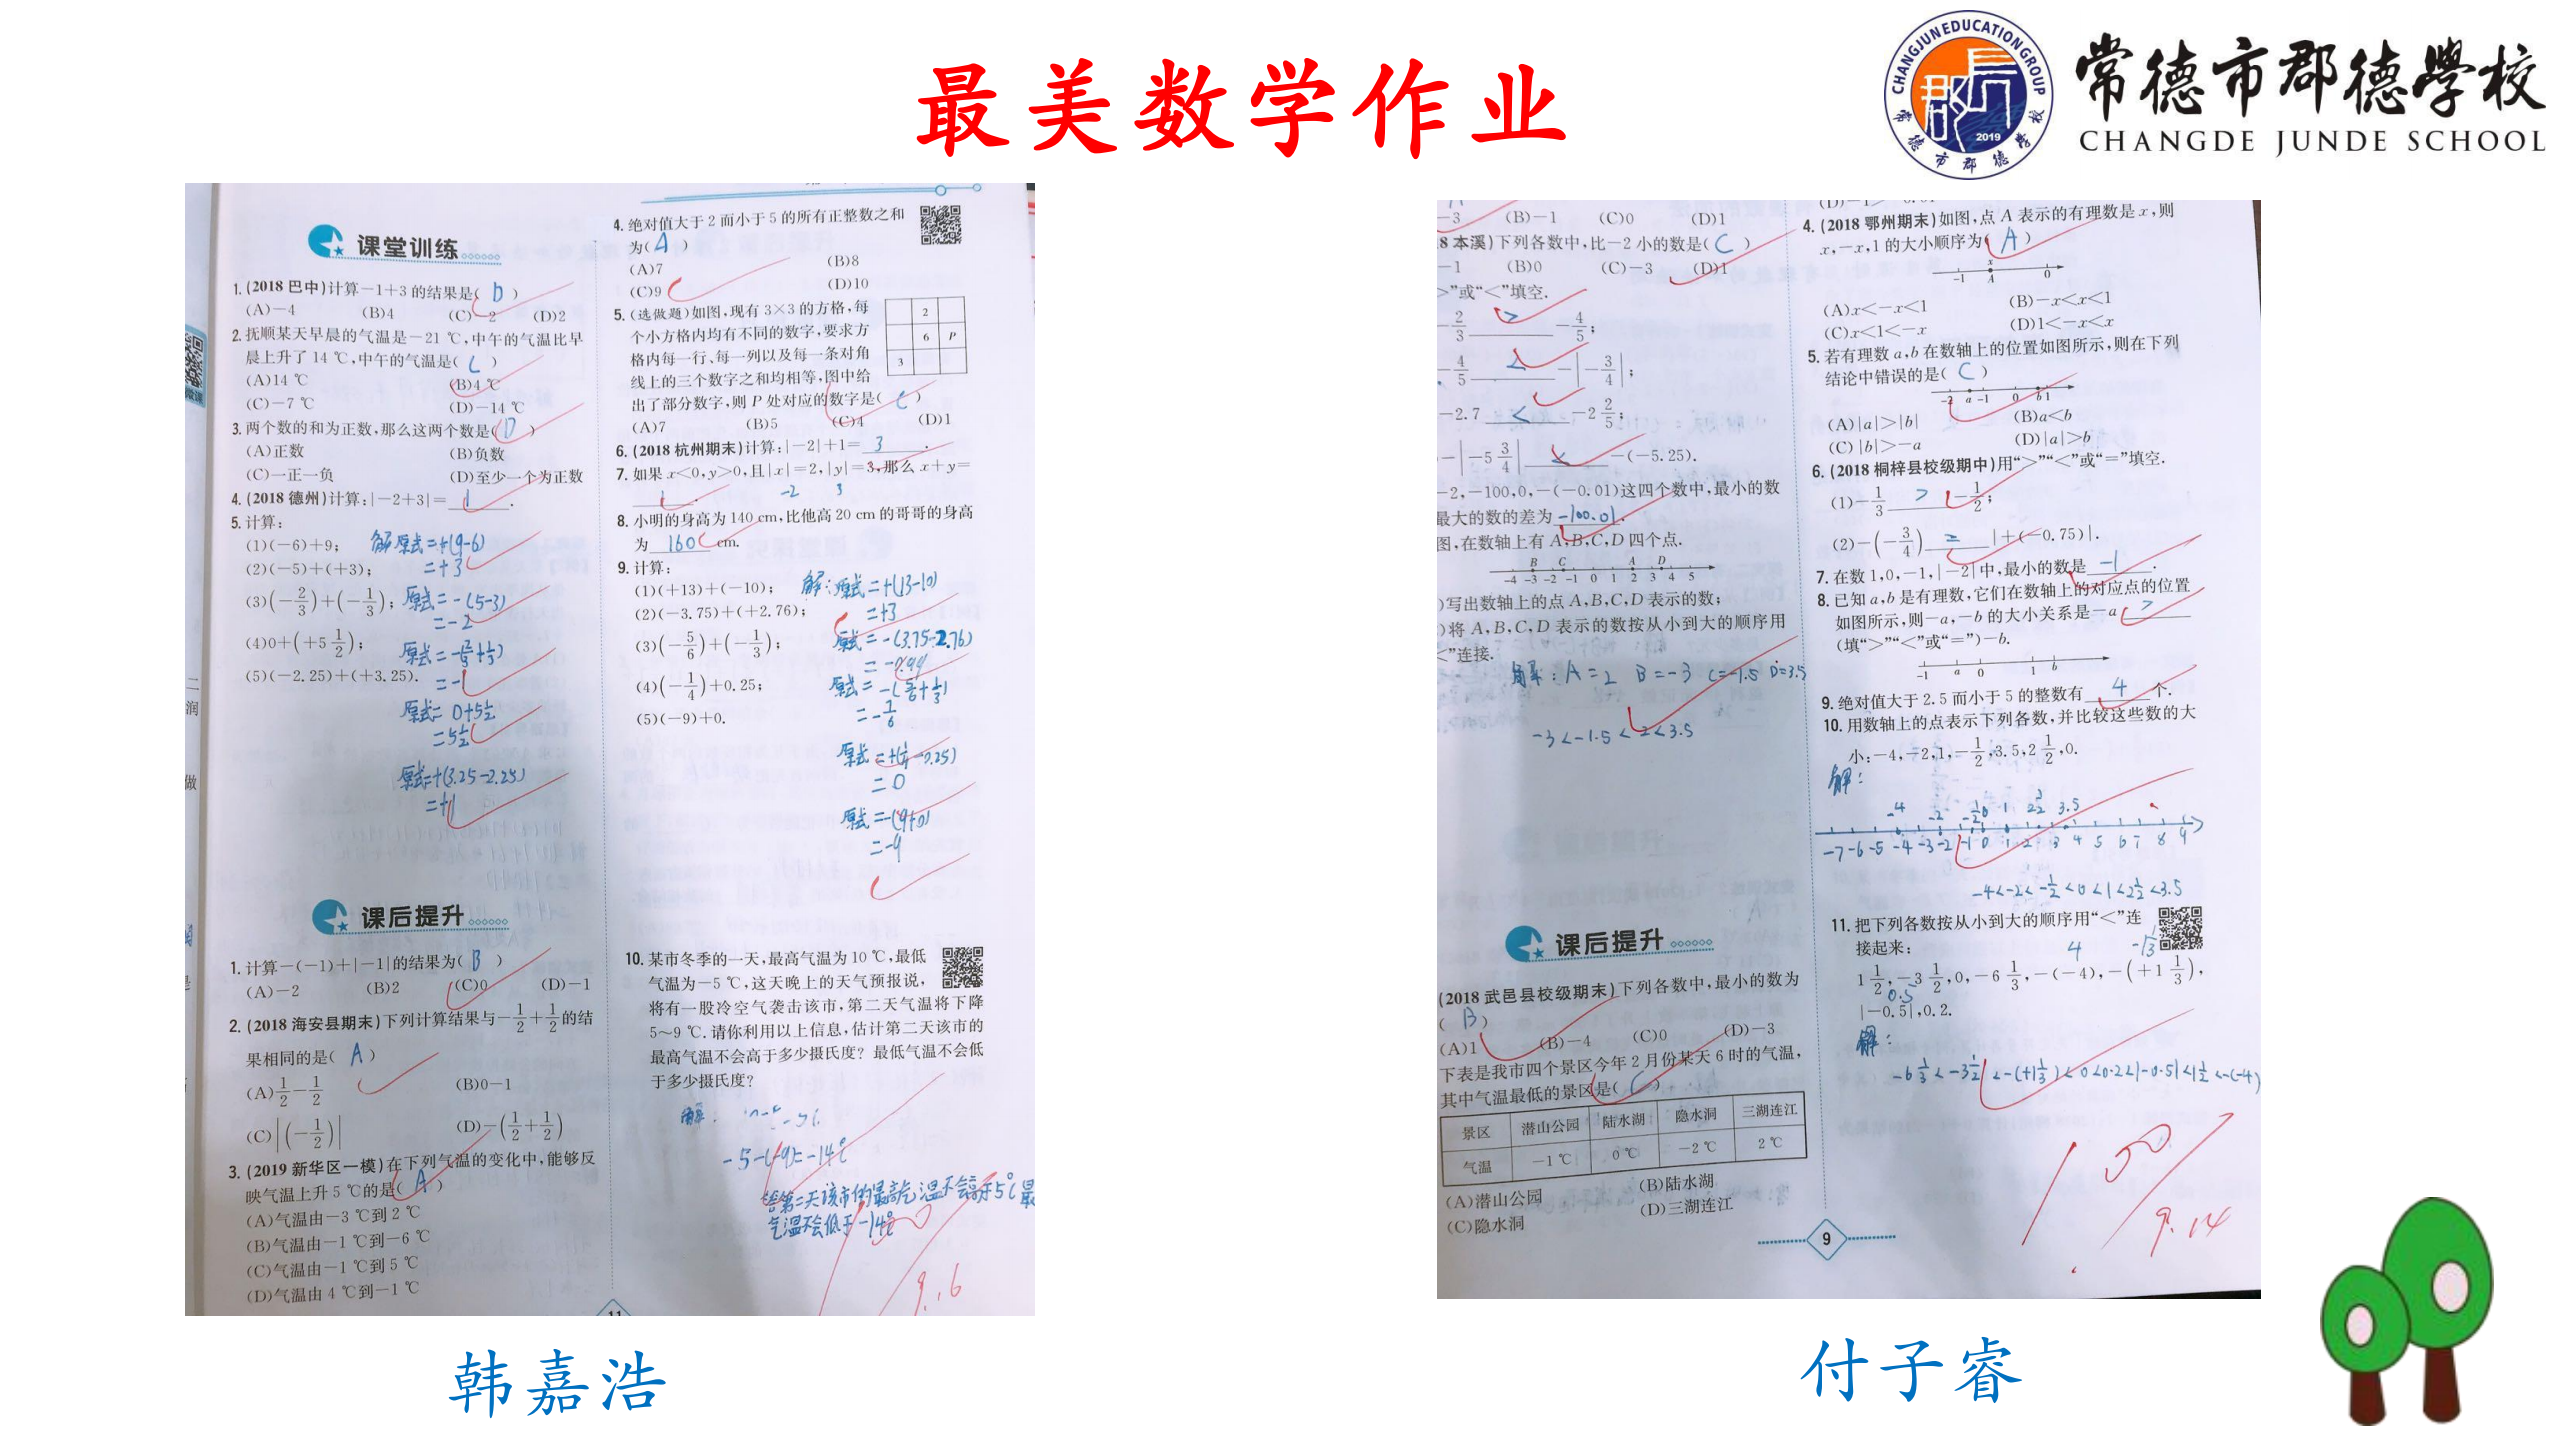 最美数学作业
CHANGJUN EDUCATION GROUP
2019
常德市郡德学校
常德市郡德學校
CHANGDE JUNDE SCHOOL
课堂训练
1.(2018 巴中)计算－1＋3 的结果是( D )
(A)－4 (B)4 (C)－2 (D)2
2.抚顺某天早晨的气温是－21 ℃,中午的气温比早
晨上升了 14 ℃,中午的气温是( C )
(A)14 ℃ (B)4 ℃
(C)－7 ℃ (D)－14 ℃
3.两个数的和为正数,那么这两个数是( D )
(A)正数 (B)负数
(C)一正一负 (D)至少一个为正数
4.(2018 德州)计算:|－2＋3|＝ 1 .
5.计算:
(1)(－6)＋9; 解原式=+(9-6)
(2)(－5)＋(＋3); =+3
(3)(－2/3)＋(－1/3); 原式=-(5-3)
=-2
(4)0＋(＋5 1/2); 原式=-(2/3+1/3)
(5)(－2.25)＋(＋3.25). =-1
原式=0+5 1/2
=5 1/2
原式=+(3.25-2.25)
=+1
课后提升
1.计算－(－1)＋|－1|的结果为( B )
(A)－2 (B)2 (C)0 (D)－1
2.(2018 海安县期末)下列计算结果与－1/2＋1/2的结
果相同的是( A )
(A)1/2－1/2 (B)0－1
(C)|(－1/2)| (D)－(1/2＋1/2)
3.(2019 新华区一模)在下列气温的变化中,能够反
映气温上升 5 ℃的是( A )
(A)气温由－3 ℃到 2 ℃
(B)气温由－1 ℃到－6 ℃
(C)气温由－1 ℃到 5 ℃
(D)气温由 4 ℃到－1 ℃
4.绝对值大于 2 而小于 5 的所有正整数之和
为( A )
(A)7 (B)8
(C)9 (D)10
5.(选做题)如图,现有 3×3 的方格,每
个小方格内均有不同的数字,要求方
格内每一行、每一列以及每一条对角
线上的三个数字之和均相等,图中给
出了部分数字,则 P 处对应的数字是( C )
2
6 P
3
(A)7 (B)5 (C)4 (D)1
6.(2018 杭州期末)计算:|－2|＋1＝ 3 .
7.如果 x<0,y>0,且|x|＝2,|y|＝3,那么 x＋y＝
1 . -2 3
8.小明的身高为 140 cm,比他高 20 cm 的哥哥的身高
为 160 cm.
9.计算:
(1)(＋13)＋(－10); 解:原式=+(13-10)
(2)(－3.75)＋(＋2.76); =+3
(3)(－5/6)＋(－1/3); 原式=-(3.75-2.76)
=-0.99
(4)(－1/4)＋0.25; 原式=-(5/6+1/3)
(5)(－9)＋0. =-7/6
原式=+(1/4-0.25)
=0
原式=-(9+0)
=-9
10.某市冬季的一天,最高气温为 10 ℃,最低
气温为－5 ℃,这天晚上的天气预报说,
将有一股冷空气袭击该市,第二天气温将下降
5～9 ℃.请你利用以上信息,估计第二天该市的
最高气温不会高于多少摄氏度? 最低气温不会低
于多少摄氏度?
解:
-5-(-9)=-14℃
答第二天该市的最高气温不会高于5℃最
气温不会低于-14℃
100
9.6
11
韩嘉浩
－3 (B)－1 (C)0 (D)1
8 本溪)下列各数中,比－2 小的数是( C )
－1 (B)0 (C)－3 (D)1
>”或“<”填空.
－2/3 > －4/5;
－4/5 < －|－3/4|;
－2.7 < －2 2/5;
－|－5 3/4| < －(－5.25).
－2,－100,0,－(－0.01)这四个数中,最小的数
最大的数的差为 -100.01 .
图,在数轴上有 A,B,C,D 四个点.
B C A D
－4 －3 －2 －1 0 1 2 3 4 5
)写出数轴上的点 A,B,C,D 表示的数;
)将 A,B,C,D 表示的数按从小到大的顺序用
<”连接.
解:A=2 B=-3 C=-1.5 D=3.5
-3<-1.5<2<3.5
课后提升
(2018 武邑县校级期末)下列各数中,最小的数为
( B )
(A)1 (B)－4 (C)0 (D)－3
下表是我市四个景区今年 2 月份某天 6 时的气温,
其中气温最低的景区是( C )
景区 潜山公园 陆水湖 隐水洞 三湖连江
气温 －1 ℃ 0 ℃ －2 ℃ 2 ℃
(A)潜山公园 (B)陆水湖
(C)隐水洞 (D)三湖连江
9
4.(2018 鄂州期末)如图,点 A 表示的有理数是 x,则
x,－x,1 的大小顺序为( A )
x
－1 A 0
(A)x<－x<1 (B)－x<x<1
(C)x<1<－x (D)1<－x<x
5.若有理数 a,b 在数轴上的位置如图所示,则在下列
结论中错误的是( C )
－2 a －1 0 b 1
(A)|a|>|b| (B)a<b
(C)|b|>－a (D)|a|>b
6.(2018 桐梓县校级期中)用“>”“<”或“=”填空.
(1)－1/3 > －1/2;
(2)－(－3/4) = |＋(－0.75)|.
7.在数 1,0,－1,|－2|中,最小的数是 -1 .
8.已知 a,b 是有理数,它们在数轴上的对应点的位置
如图所示,则－a,－b 的大小关系是－a >
(填“>”“<”或“=”)－b.
－1 a 0 1 b
9.绝对值大于 2.5 而小于 5 的整数有 4 个.
10.用数轴上的点表示下列各数,并比较这些数的大
小:－4,－2,1,－1/2,3.5,2 1/2,0.
解:
-4 -2 -1/2 0 1 2 1/2 3.5
-7 -6 -5 -4 -3 -2 -1 0 1 2 3 4 5 6 7 8 9
-4<-2<-1/2<0<1<2 1/2<3.5
11.把下列各数按从小到大的顺序用“<”连
接起来:
4
1 1/2,－3 1/2,0,－6 1/3,－(－4),－(＋1 1/3),
0.5
|－0.5|,0.2.
解:
-6 1/3<-3 1/2<-(+1 1/3)<0<0.2<|-0.5|<1 1/2<-(-4)
100
9.14
付子睿